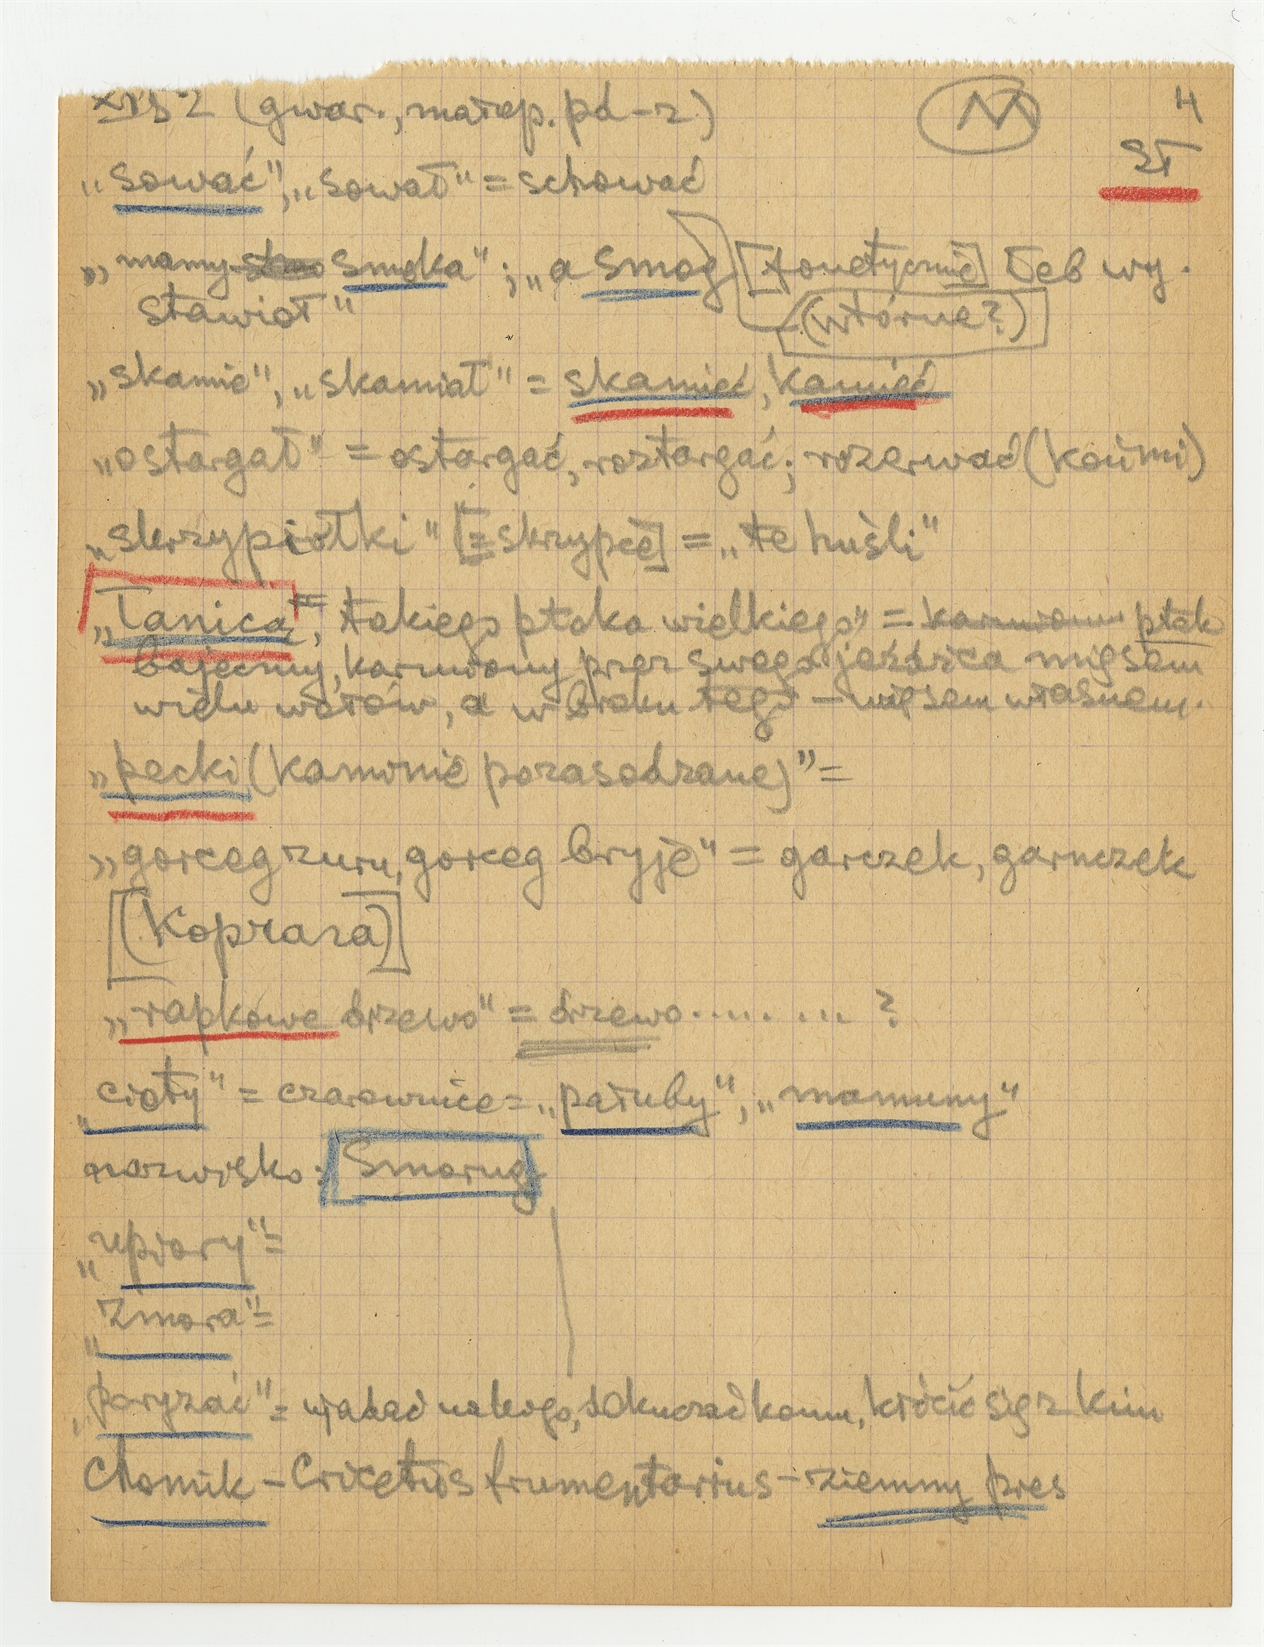 (gwar., małop. pd-z) M 4
SŁ
„sować", „sował" = schować
„mamy smoka"; „a smog [fonetycznie] łeb wy-
stawioł" (wtórne?)
„skamie", „skamiał" = skamieć, kamieć
„ostargał" = ostargać, roztargać; rozerwać (końmi)
„skrzypiołki" [= skrzypce] = „te huśli"
„Tanica", takiego ptoka wielkiego" = ptak
bajeczny, karmiony przez swego jeźdźca mięsem
wielu wołów, a w braku tego – mięsem własnem.
„pecki (kamienie pozasadzane)" =
„gorceg żuru, gorceg bryje" = garczek, garnczek
[(Kopraza)]
„rapkowe drzewo" = drzewo ........ ?
„cioty" = czarownice = „pałuby", „mamuny"
nazwisko: Smorug
„upiory" =
„Zmora" =
„paryzać" = ujadać na kogo, dokuczać komu, kłócić się z kim
Chomik – Cricetus frumentarius – ziemny pies